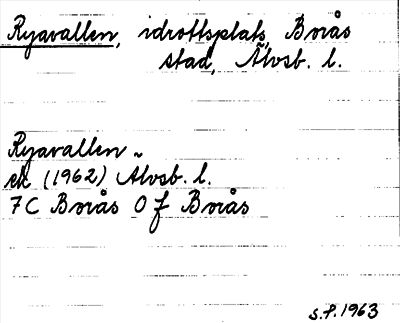 Ryavallen, idrottsplats, Borås
stad, Älvsb. l.
Ryavallen ~
ek (1962) Älvsb. l.
7C Borås O f Borås
S.P. 1963